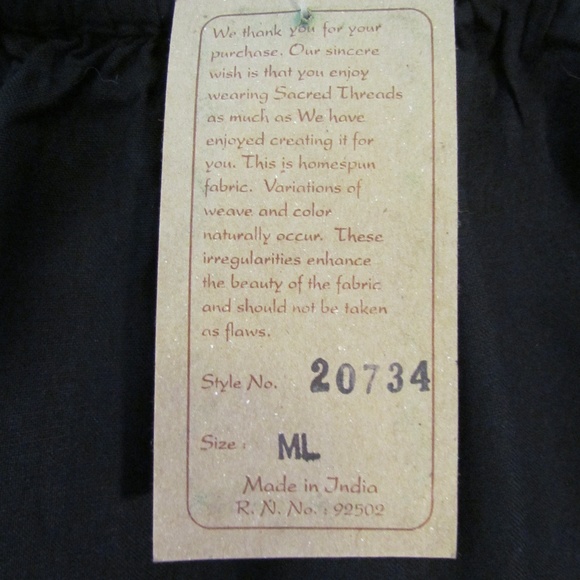 We thank you for your
purchase. Our sincere
wish is that you enjoy
wearing Sacred Threads
as much as We have
enjoyed creating it for
you. This is homespun
fabric. Variations of
weave and color
naturally occur. These
irregularities enhance
the beauty of the fabric
and should not be taken
as flaws.
Style No. 20734
Size : ML
Made in India
R. N. No. : 92502